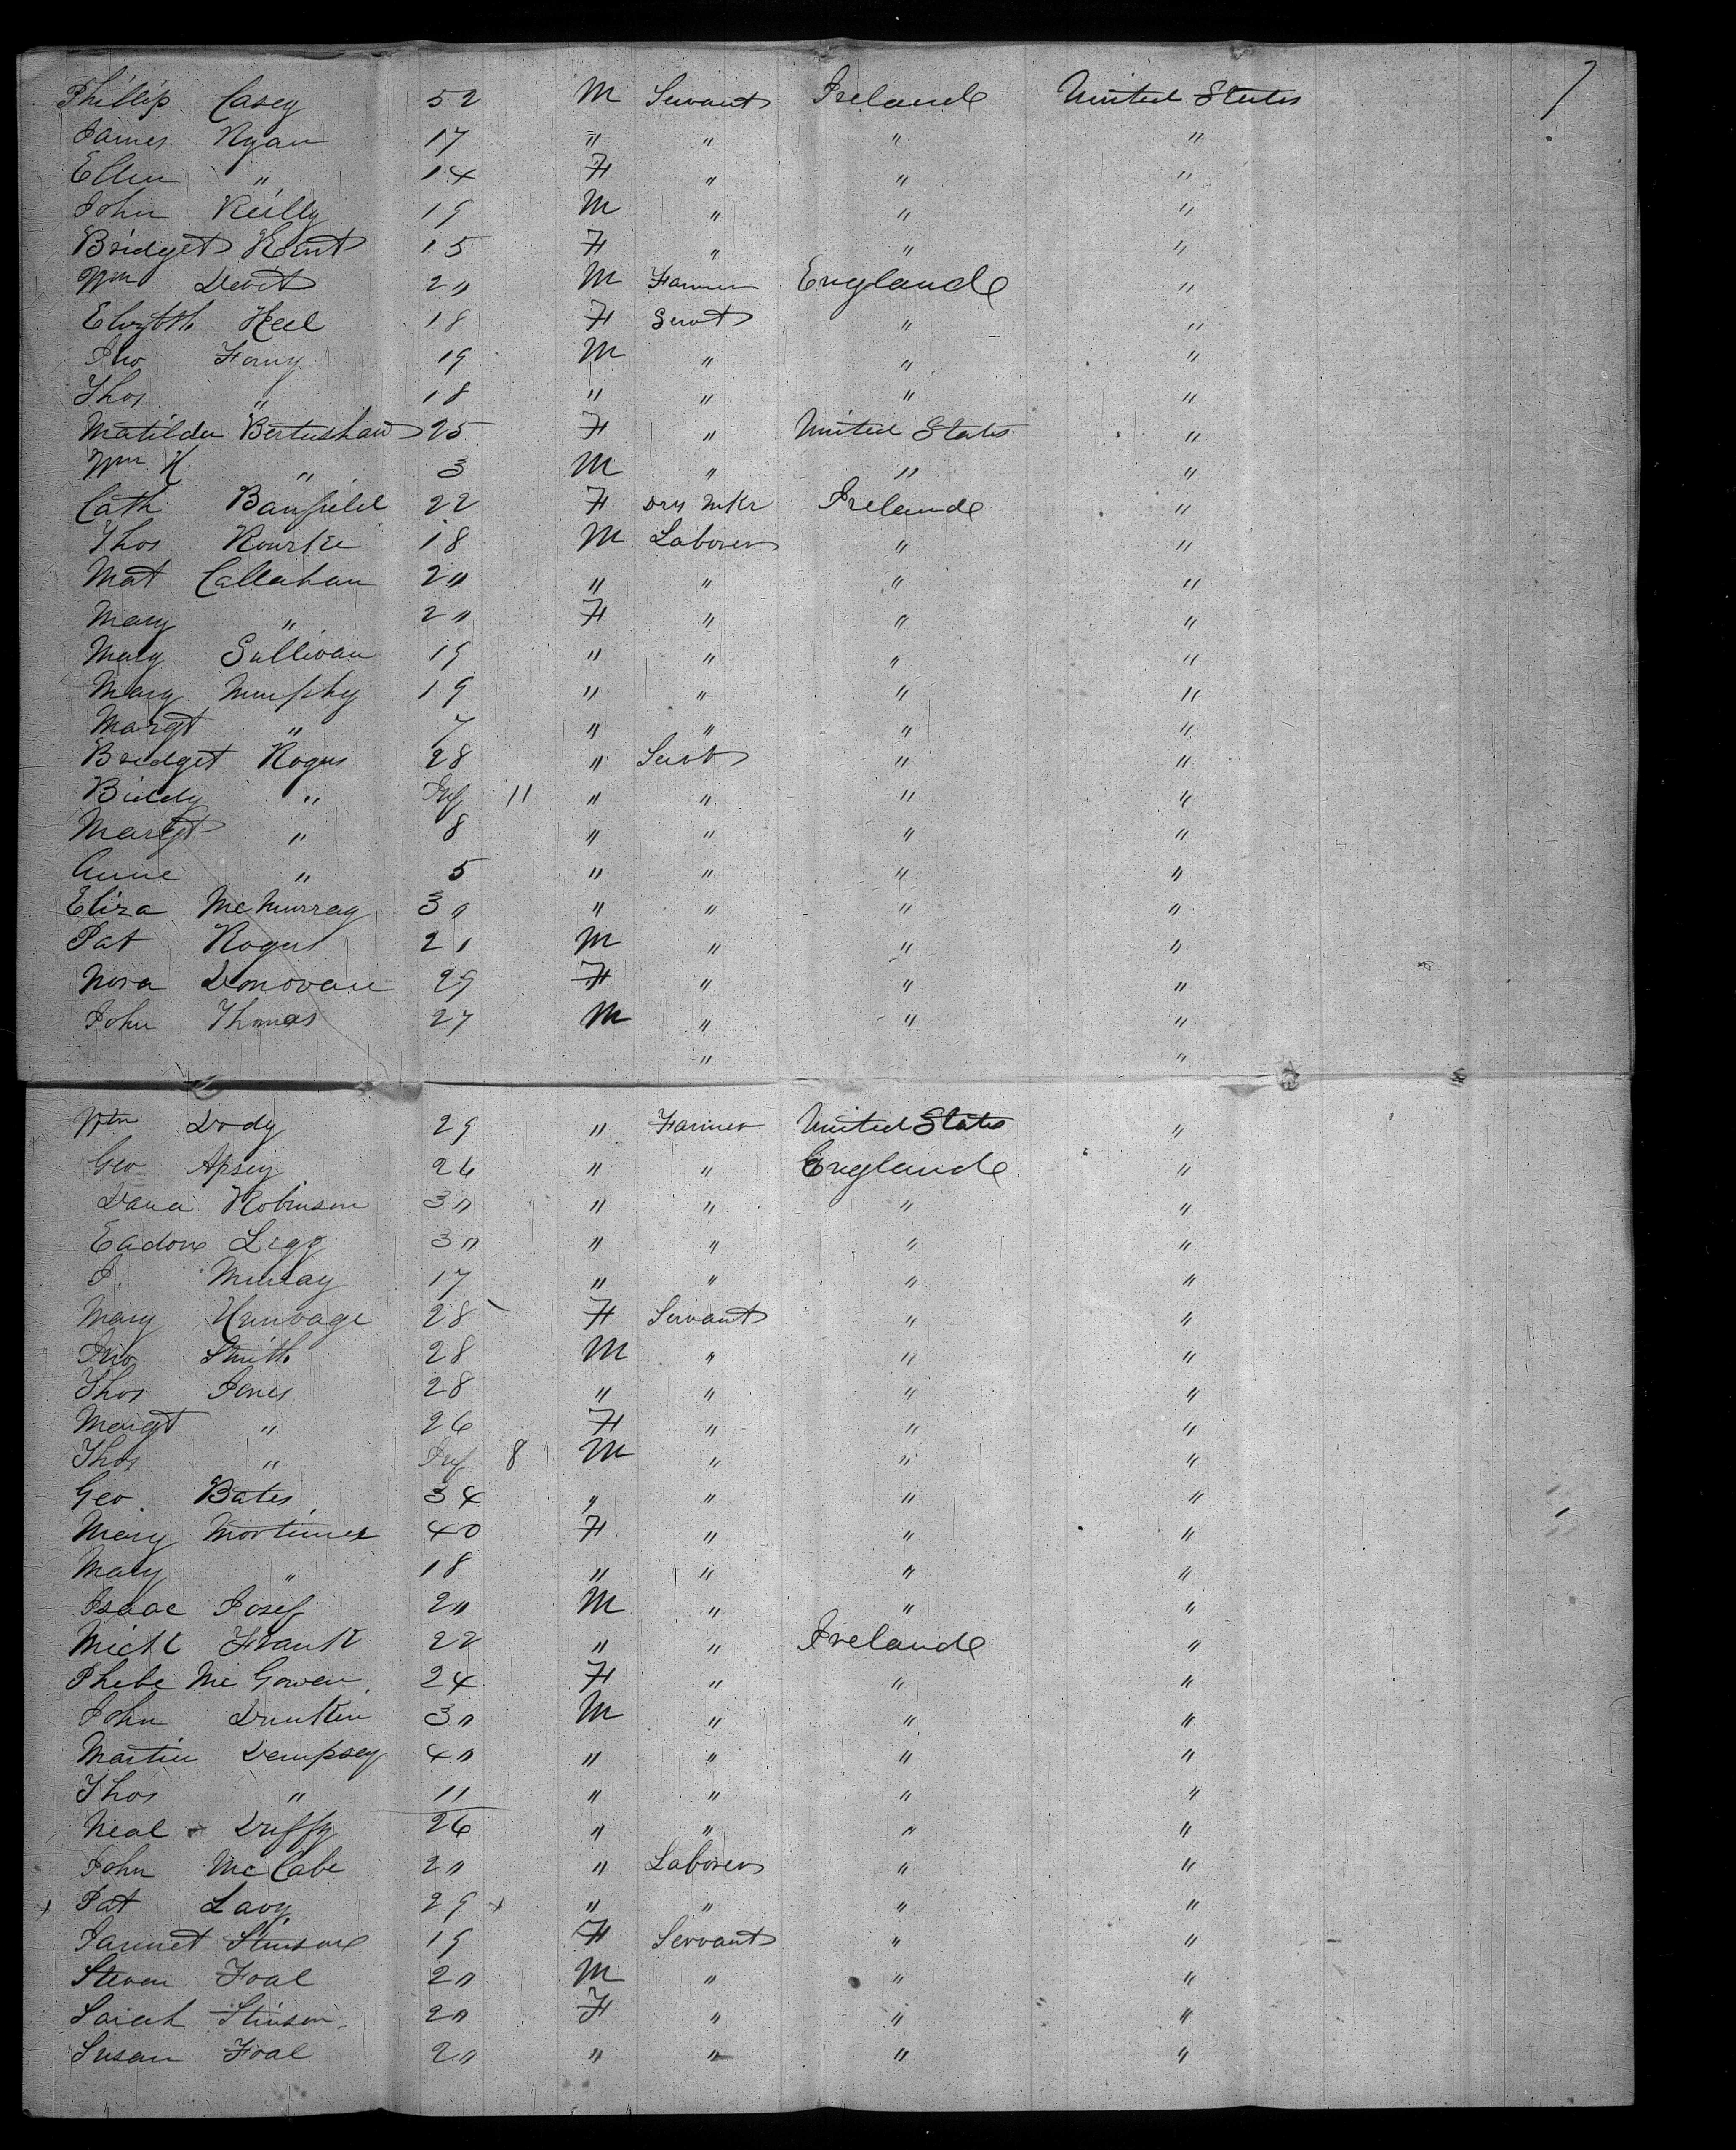 7
Phillip Casey 52 M Servant Ireland United States
James Ryan 17 " " " "
Ellen " 14 F " " "
John Reilly 19 M " " "
Bridget Kent 15 F " " "
Wm Devit 20 M Farmer England "
Elizbth Heel 18 F Servt " "
Jno 19 M " " "
Thos " 18 " " " "
Matilda Bertishaw 25 F " United States "
Wm H " 3 M " " "
Cath Banfield 22 F Drs Mkr Ireland "
Thos Rourke 18 M Laborer " "
Mat Callahan 20 " " " "
Mary " 20 F " " "
Mary Sullivan 19 " " " "
Mary Murphy 19 " " " "
Margt " 7 " " " "
Bridget Rogers 28 " Servt " "
Biddy " Inf 11 " " " "
Margt " 8 " " " "
Anne " 5 " " " "
Eliza McMurray 30 " " " "
Pat Rogers 21 M " " "
Nora Donovan 29 F " " "
John Thomas 27 M " " "
" "
Wm Dody 29 " Farmer United States "
Geo Apsey 26 " " England "
Dana Robinson 30 " " " "
Legg 30 " " " "
J. Murray 17 " " " "
Mary 28 F Servant " "
Jno Smith 28 M " " "
Thos Jones 28 " " " "
Margt " 26 F " " "
Thos " Inf 8 M " " "
Geo. Bates 34 " " " "
Mary Mortimer 40 F " " "
Mary " 18 " " " "
Isaac Josef 20 M " " "
Mick Frank 22 " " Ireland "
Phebe McGowen 24 F " " "
John Dunken 30 M " " "
Martin Dempsey 40 " " " "
Thos " 11 " " " "
Neal Duffy 26 " " " "
John McCabe 20 " Laborer " "
x Pat Lavy 29 x " " " "
Jannet Stinson 19 F Servant " "
Steven Foal 20 M " " "
Sarah Stinson 20 F " " "
Susan Foal 20 " " " "